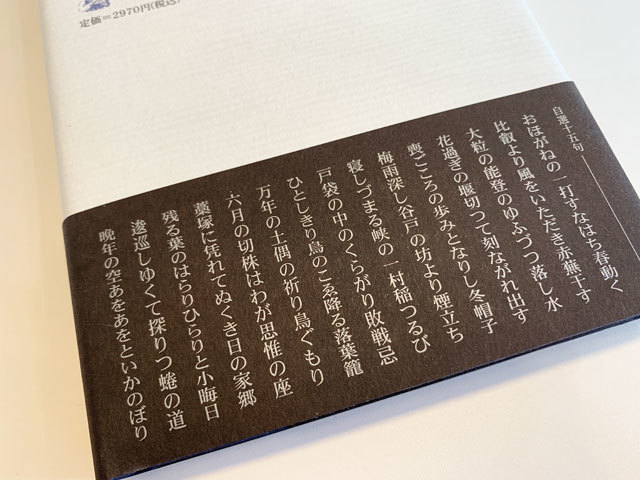 定価=2970円(税込)
自選十五句
おほがねの一打すなはち春動く
比叡より風をいただき赤蕪干す
大粒の能登のゆふづつ落し水
花過ぎの堰切つて刻ながれ出す
喪ごころの歩みとなりし冬帽子
梅雨深し谷戸の坊より煙立ち
寝しづまる峡の一村稲つるび
戸袋の中のくらがり敗戦忌
ひとしきり鳥のこゑ降る落葉籠
万年の土偶の祈り鳥ぐもり
六月の切株はわが思惟の座
藁塚に凭れてぬくき日の家郷
残る葉のはらりひらりと小晦日
逡巡しゆくて探りつ蜷の道
晩年の空あをあをといかのぼり